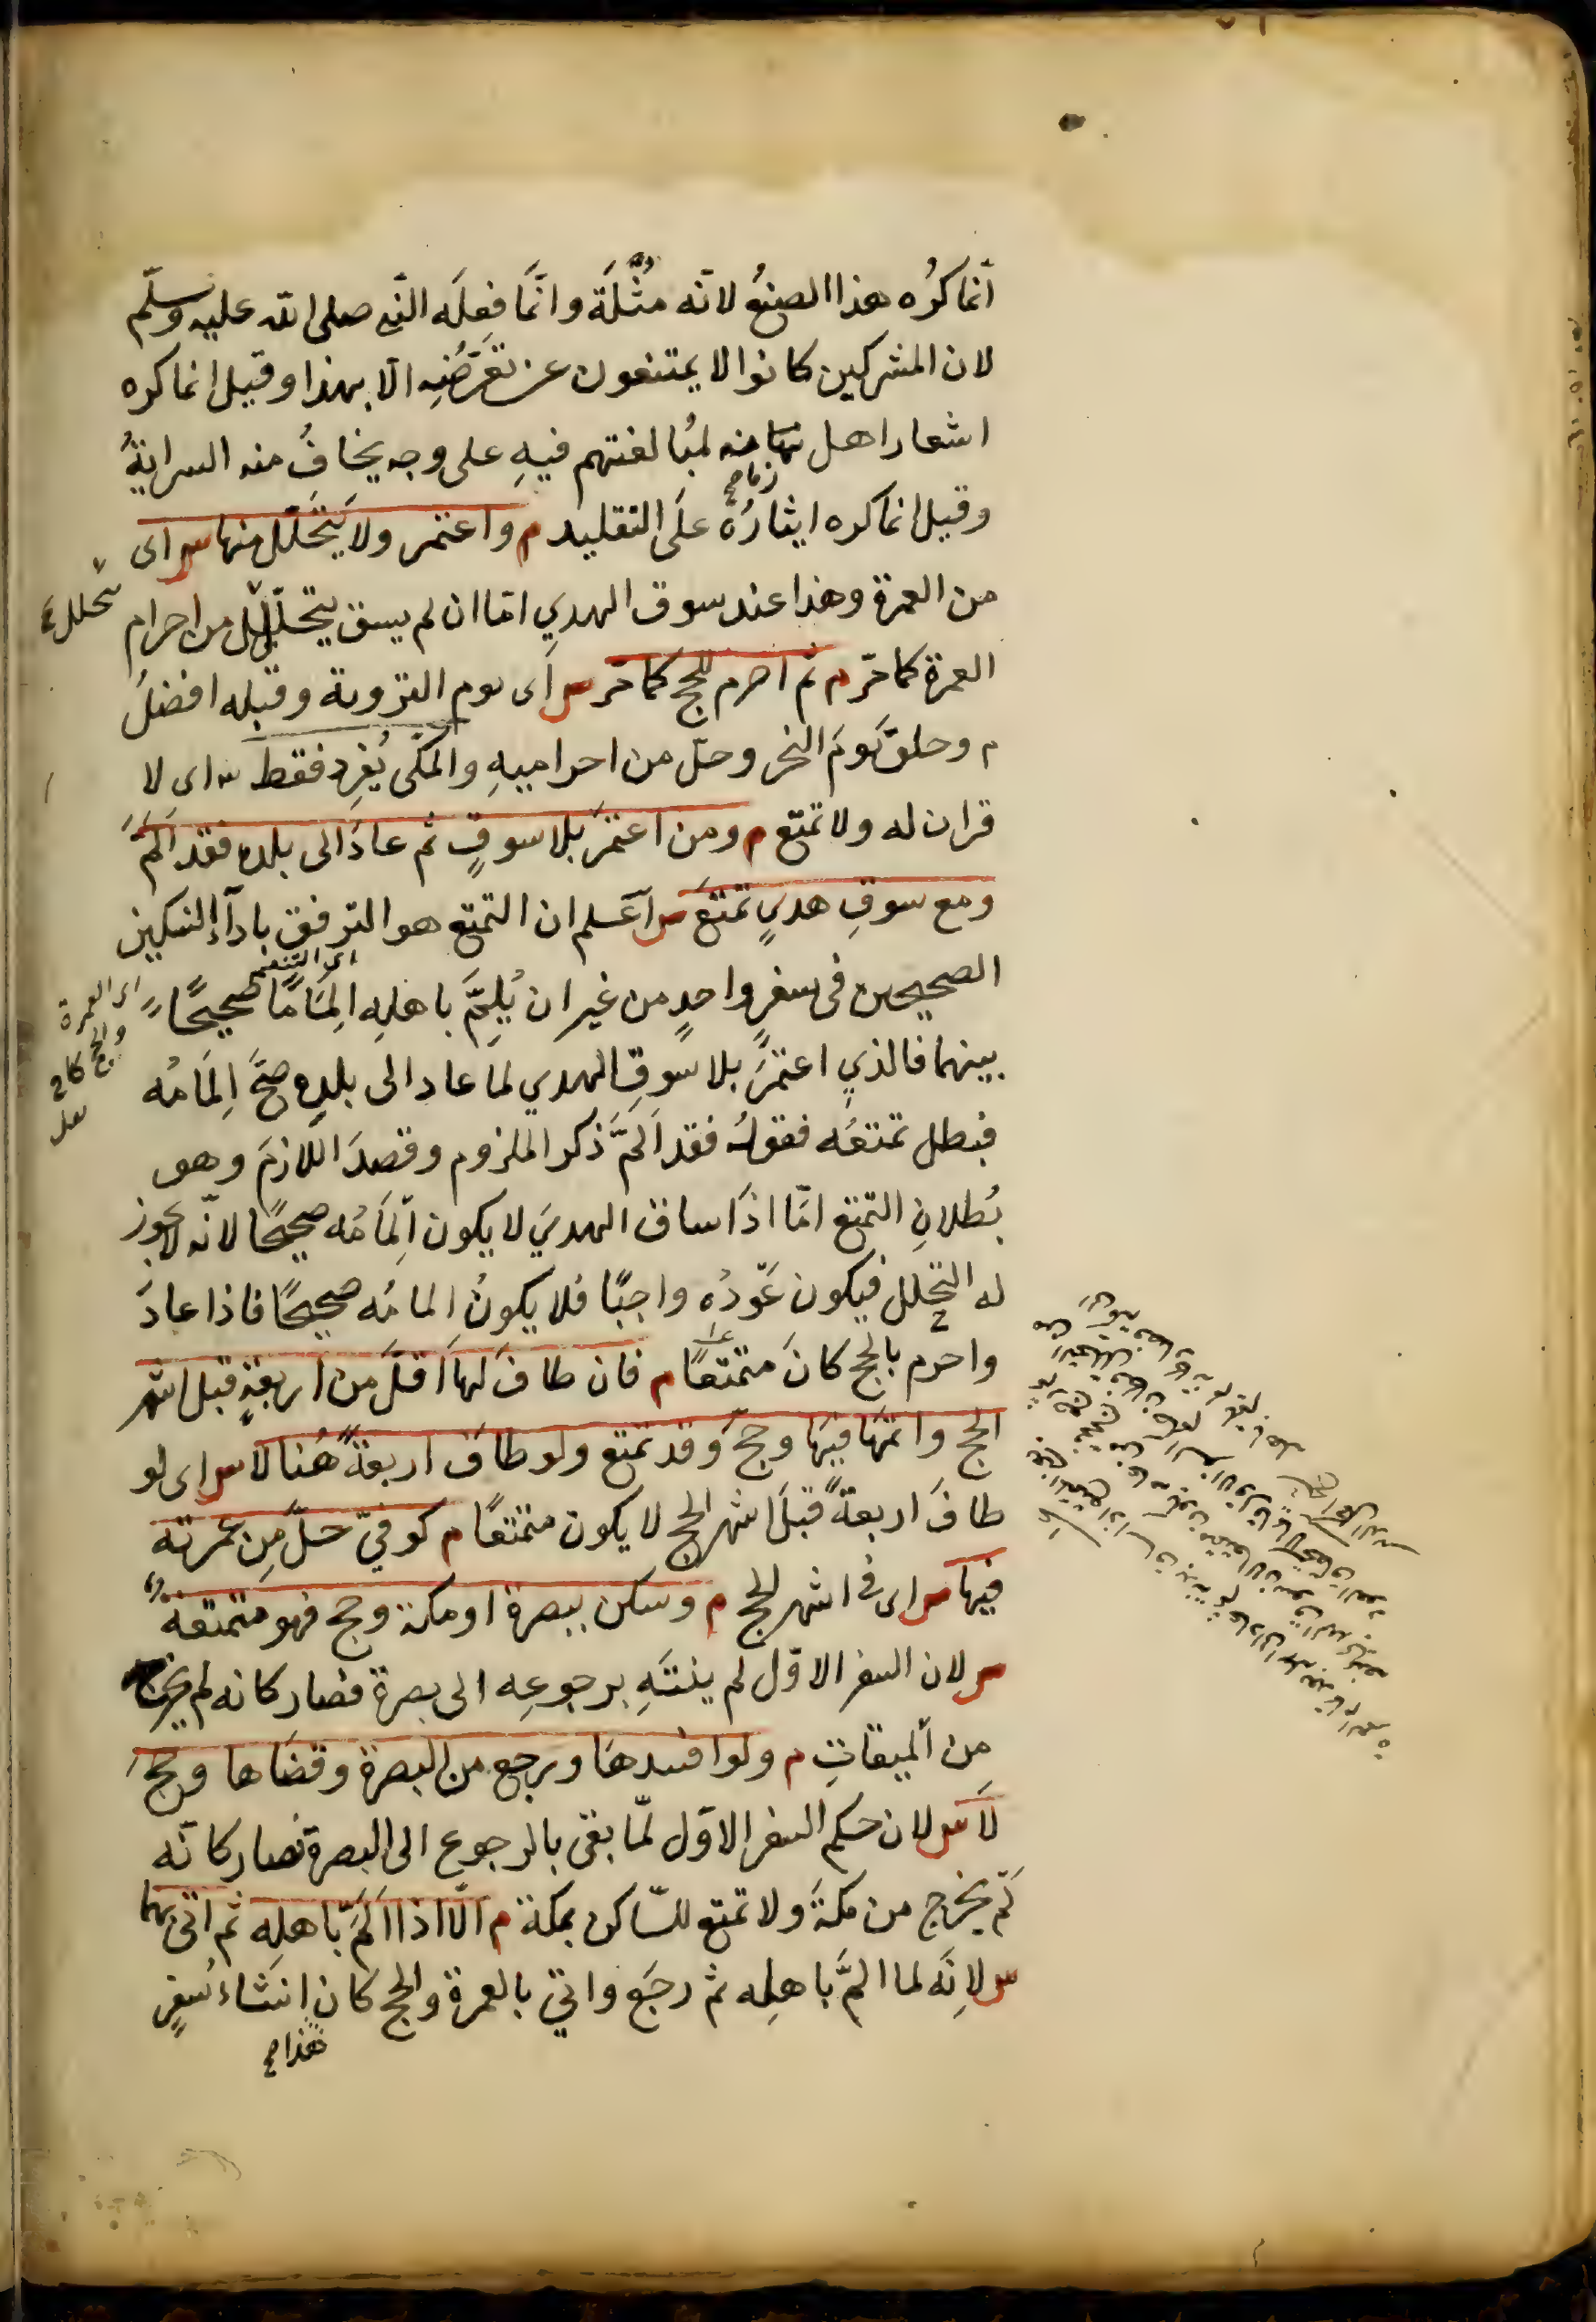 انما كُرِه هذا الصنعُ لانّه مُثْلَة وانّما فعلَه النّبي صلى الله عليه وسلّم
لان المشركين كانوا لا يمتنعون عن تعَرّضُنِه الّا بهذا وقيل انما كره
اشعار اهل زمانه لمُبالغتهم فيهِ على وجه يخافُ منه السرايةُ
وقيل انما كره ايثارُهُ علَى التقليد م واعتمر ولا يَتحَلّل منها س اى
من العمرة وهذا عند سوق الهدي امّا ان لم يسق يتحلّل من احرام
العمرة كما مرّ م ثم احرم للحج كما مَرّ س اَى يوم التروية وقبله افضلُ
م وحلقَ يَومَ النحر وحلّ من احراميهِ والمكّى يُفرِد فقط س اى لا
قران له ولا تمتع م ومن اعتمَرَ بلا سوقٍ ثم عادَ الى بلده فقد اَلَمَّ
ومع سوقِ هديٍ تمتّعَ س اَعلم ان التمتع هو الترفق باداَءِ النسكين
الصحيحين فى سفرٍ واحدٍ من غير ان يُلِمَّ باهلِه اِلمَامًا صحيحًا
اى التنعم
بينهما فالذي اعتمَرَ بلا سوقِ الهدي لما عاد الى بلدِه صحَّ اِلمَامُه
فبطل تمتعُه فقولُه فقد اَلمَّ ذكر الملزوم وقصدَ اللازمَ وهو
بُطلانِ التمتع امّا اذَا ساق الهديَ لا يكون اِلمَامُه صحيحًا لانّه لا يجوز
له التحلل فيكون عَوْدُه واجبًا فلا يكونُ المامُه صحيحًا فاذا عادَ
واحرم بالحج كانَ متمتعًا م فان طافَ لها اَقلَّ من اربعةٍ قبل اشهر
الحج واتمّهَا فيهَا وحجّ وقد تمتع ولو طافَ اربعةً هُنا لا س اى لو
طافَ اربعةً قبلَ اشهر الحج لا يكون متمتعًا م كوفيّ حلّ مِن عمرته
فيها س اى فى اشهر الحج م وسكن ببصرة او مكة وحج فهو متمتعٌ
س لان السفر الاوّل لم ينتَهِ برجوعِه الى بصرة فصار كانه لم يخرج
مِن الميقاتِ م ولو افسدهَا ورجع من البصرة وقضَاها وحجّ
لَا س لان حكم السفر الاوّل لمّا بقى بالرجوع الى البصرة فصار كانّه
لَم يخرج من مكةَ ولا تمتع للسّاكن بمكة م الّا اذا اَلَمَّ باهلِه ثم اتى بهما
س لاِنّه لما المَّ باهلِه ثم رجَع واتى بالعمرة والحج كان اِنشَاءُ سُفرٍ
هذا صح
تحلل
اى العمرة
والحج